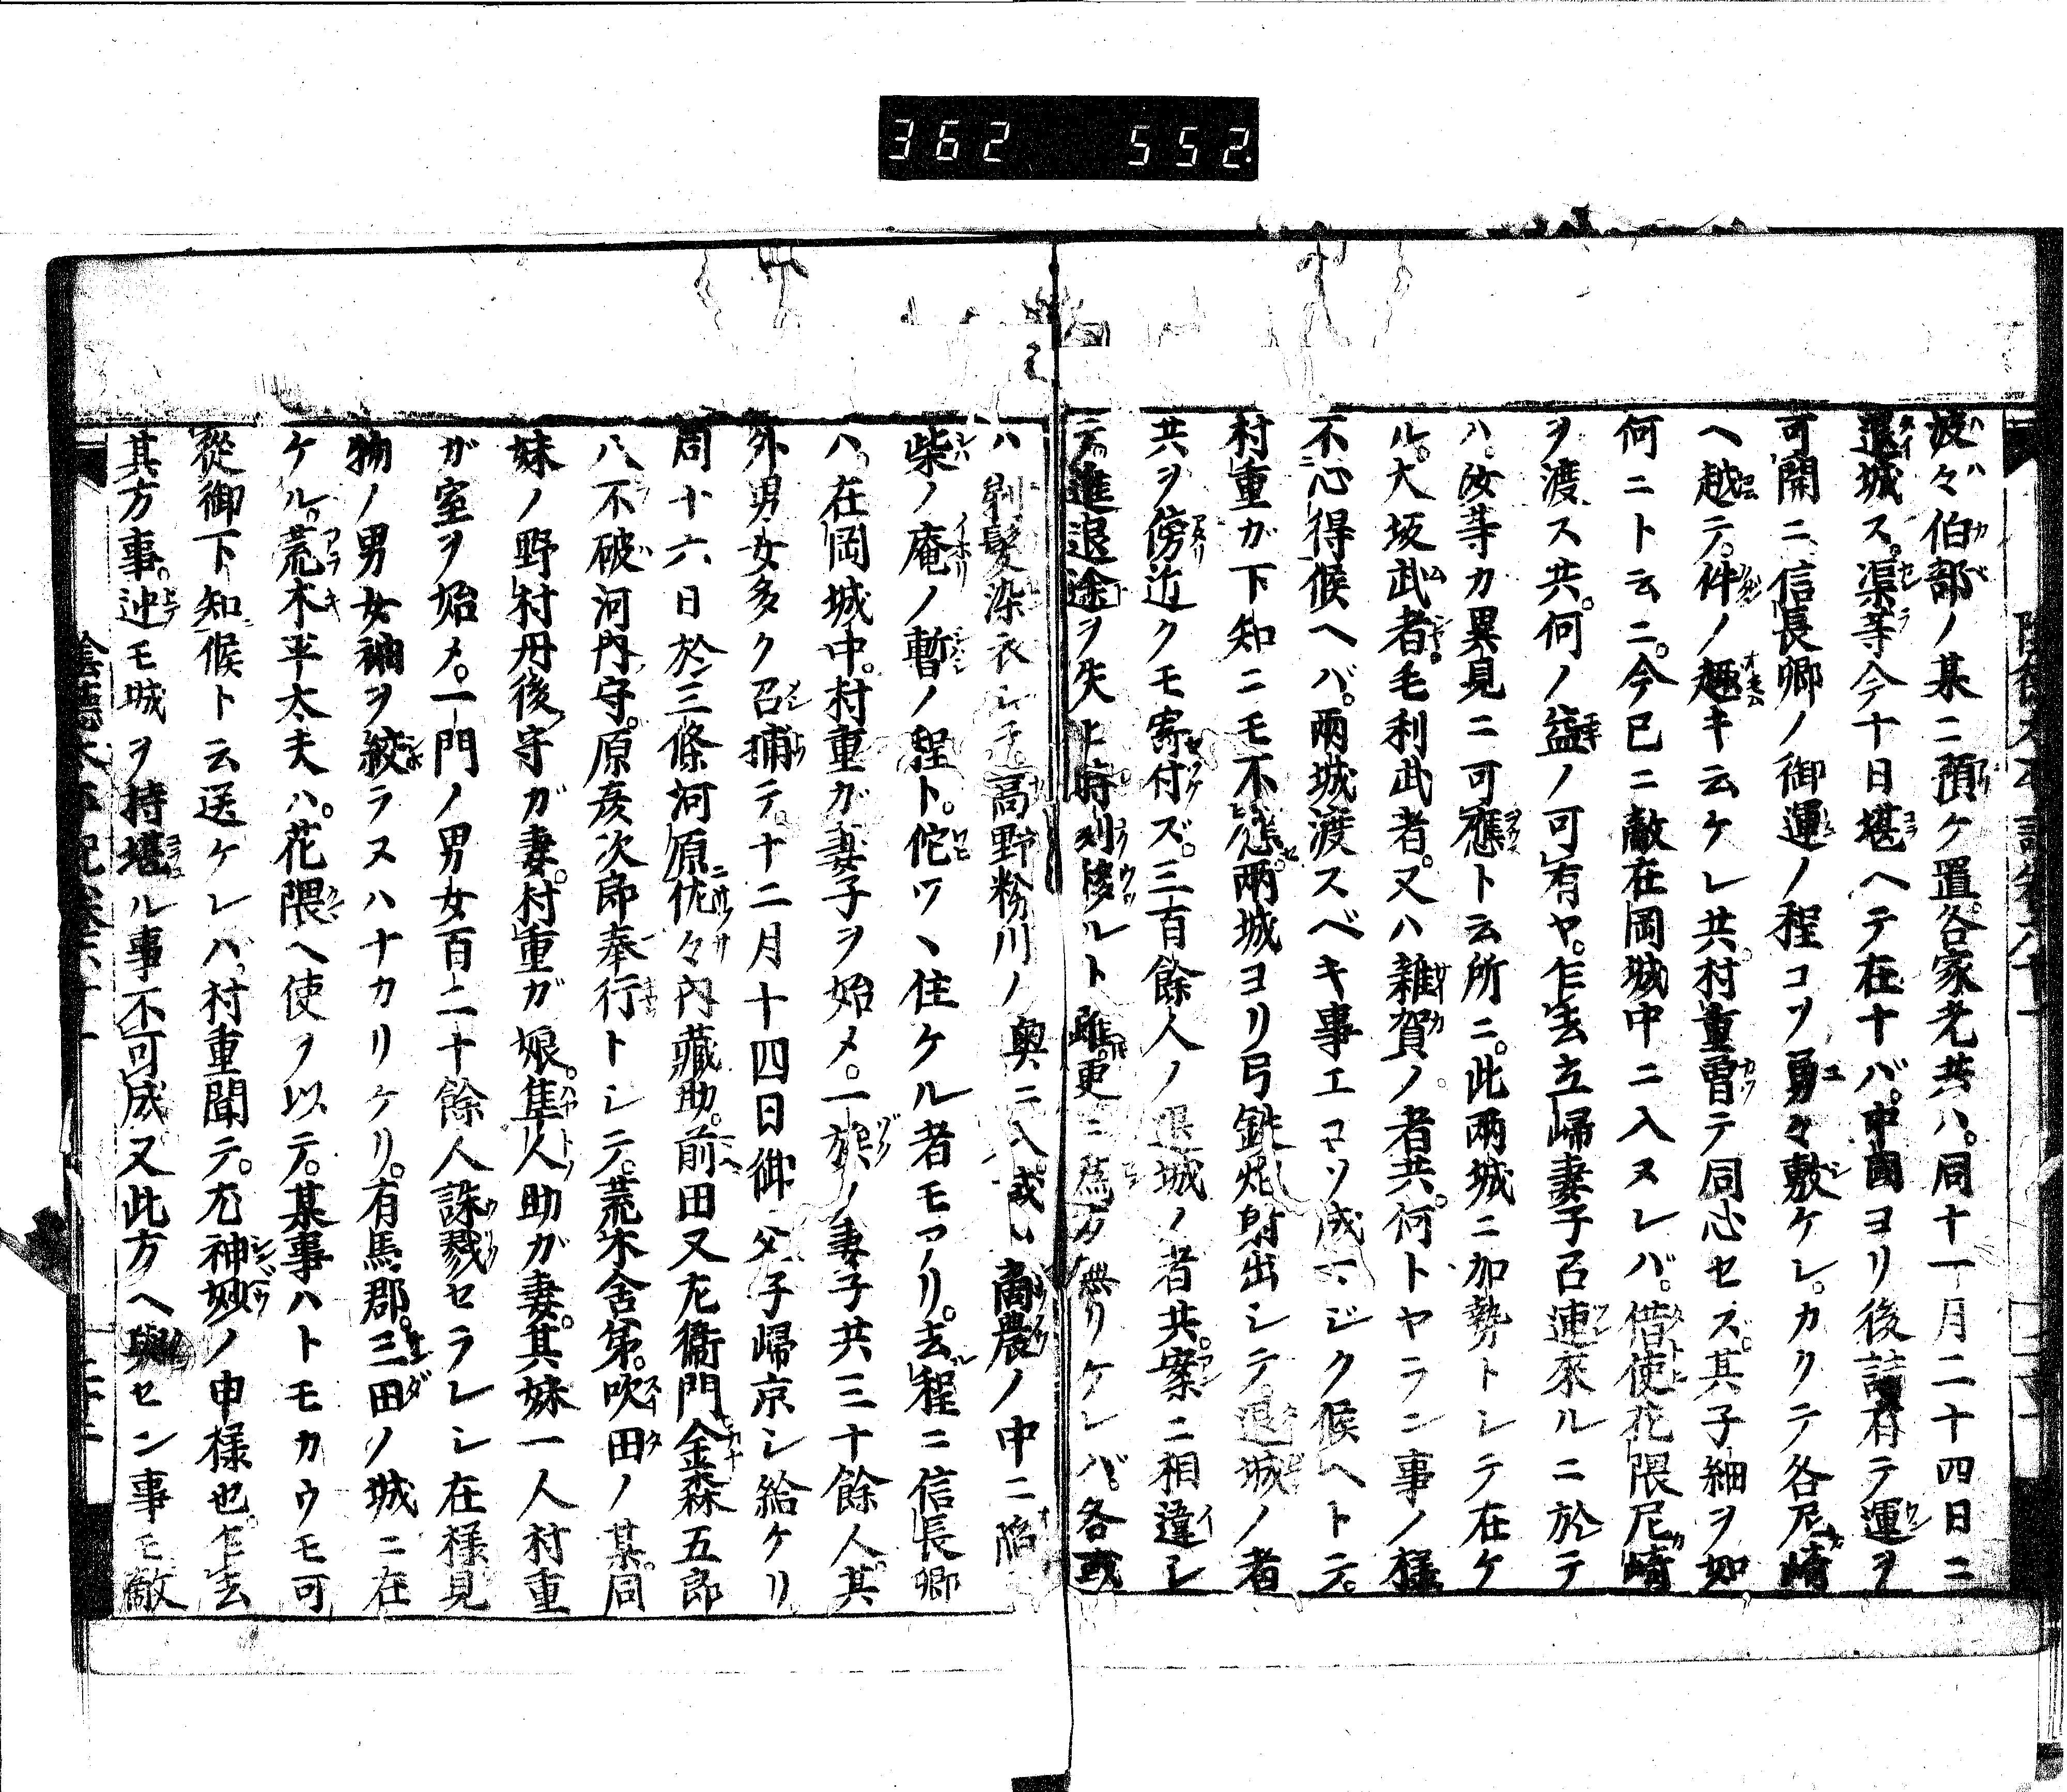 362 552
波々伯部ノ某ニ預ケ置各家老共ハ。同十一月二十四日ニ
退城ス。渠等今十日堪ヘテ在ナバ。中國ヨリ後詰有テ運ヲ
可開ニ信長卿ノ御運ノ程コソ勇々敷ケレ。カクテ各尼崎
ヘ越テ。件ノ趣キ云ケレ共。村重曽テ同心セズ。其子細ヲ如
何ニト云ニ。今已ニ敵在岡城中ニ入ヌレバ。借使花隈尼崎
ヲ渡ス共。何ノ益ノ可有ヤ。乍去立歸妻子召連來ルニ於テ
ハ。汝等カ異見ニ可應ト云所ニ。此兩城ニ加勢トレテ在ケ
ル。大坂武者。毛利武者。又ハ雜賀ノ者共。何トヤラン事ノ様
不心得候ヘバ。兩城渡スベキ事エコソ成マジク候ヘトテ。
村重ガ下知ニモ不應。兩城ヨリ弓銕炮射出シテ退城ノ者
共ヲ傍近クモ寄付ズ。三百餘人ノ退城ノ者共。案ニ相違シ
テ進退途ヲ失ヒ時刻移ルト雖。更ニ爲方無リケレバ。各或
ハ剃髮染衣シテ高野粉川ノ奥ニ入或ハ商農ノ中ニ陷
柴ノ庵ノ暫ノ程ト。佗ツヽ住ケル者モアリ。去程ニ信長卿
ハ。在岡城中。村重ガ妻子ヲ始メ。一族ノ妻子共三十餘人。其
外男女多ク召捕テ。十二月十四日御父子歸京シ給ケリ
同十六日於三條河原佐々内藏助。前田又左衞門金森五郎
八不破河内守。原彦次郎奉行トシテ。荒木舍弟。吹田ノ某。同
妹ノ野村丹後守ガ妻。村重ガ娘。隼人助ガ妻。其妹一人村重
ガ室ヲ始メ。一門ノ男女百二十餘人誅戮セラレシ在様見
物ノ男女袖ヲ絞ラヌハナカリケリ。有馬郡。三田ノ城ニ在
ケル。荒木平太夫ハ。花隈ヘ使ヲ以テ。某事ハトモカウモ可
從御下知候ト云送ケレハ。村重聞テ。尤神妙ノ申様也。乍去
其方事。迚モ城ヲ持堪ル事不可成又此方ヘ與セン事モ敵